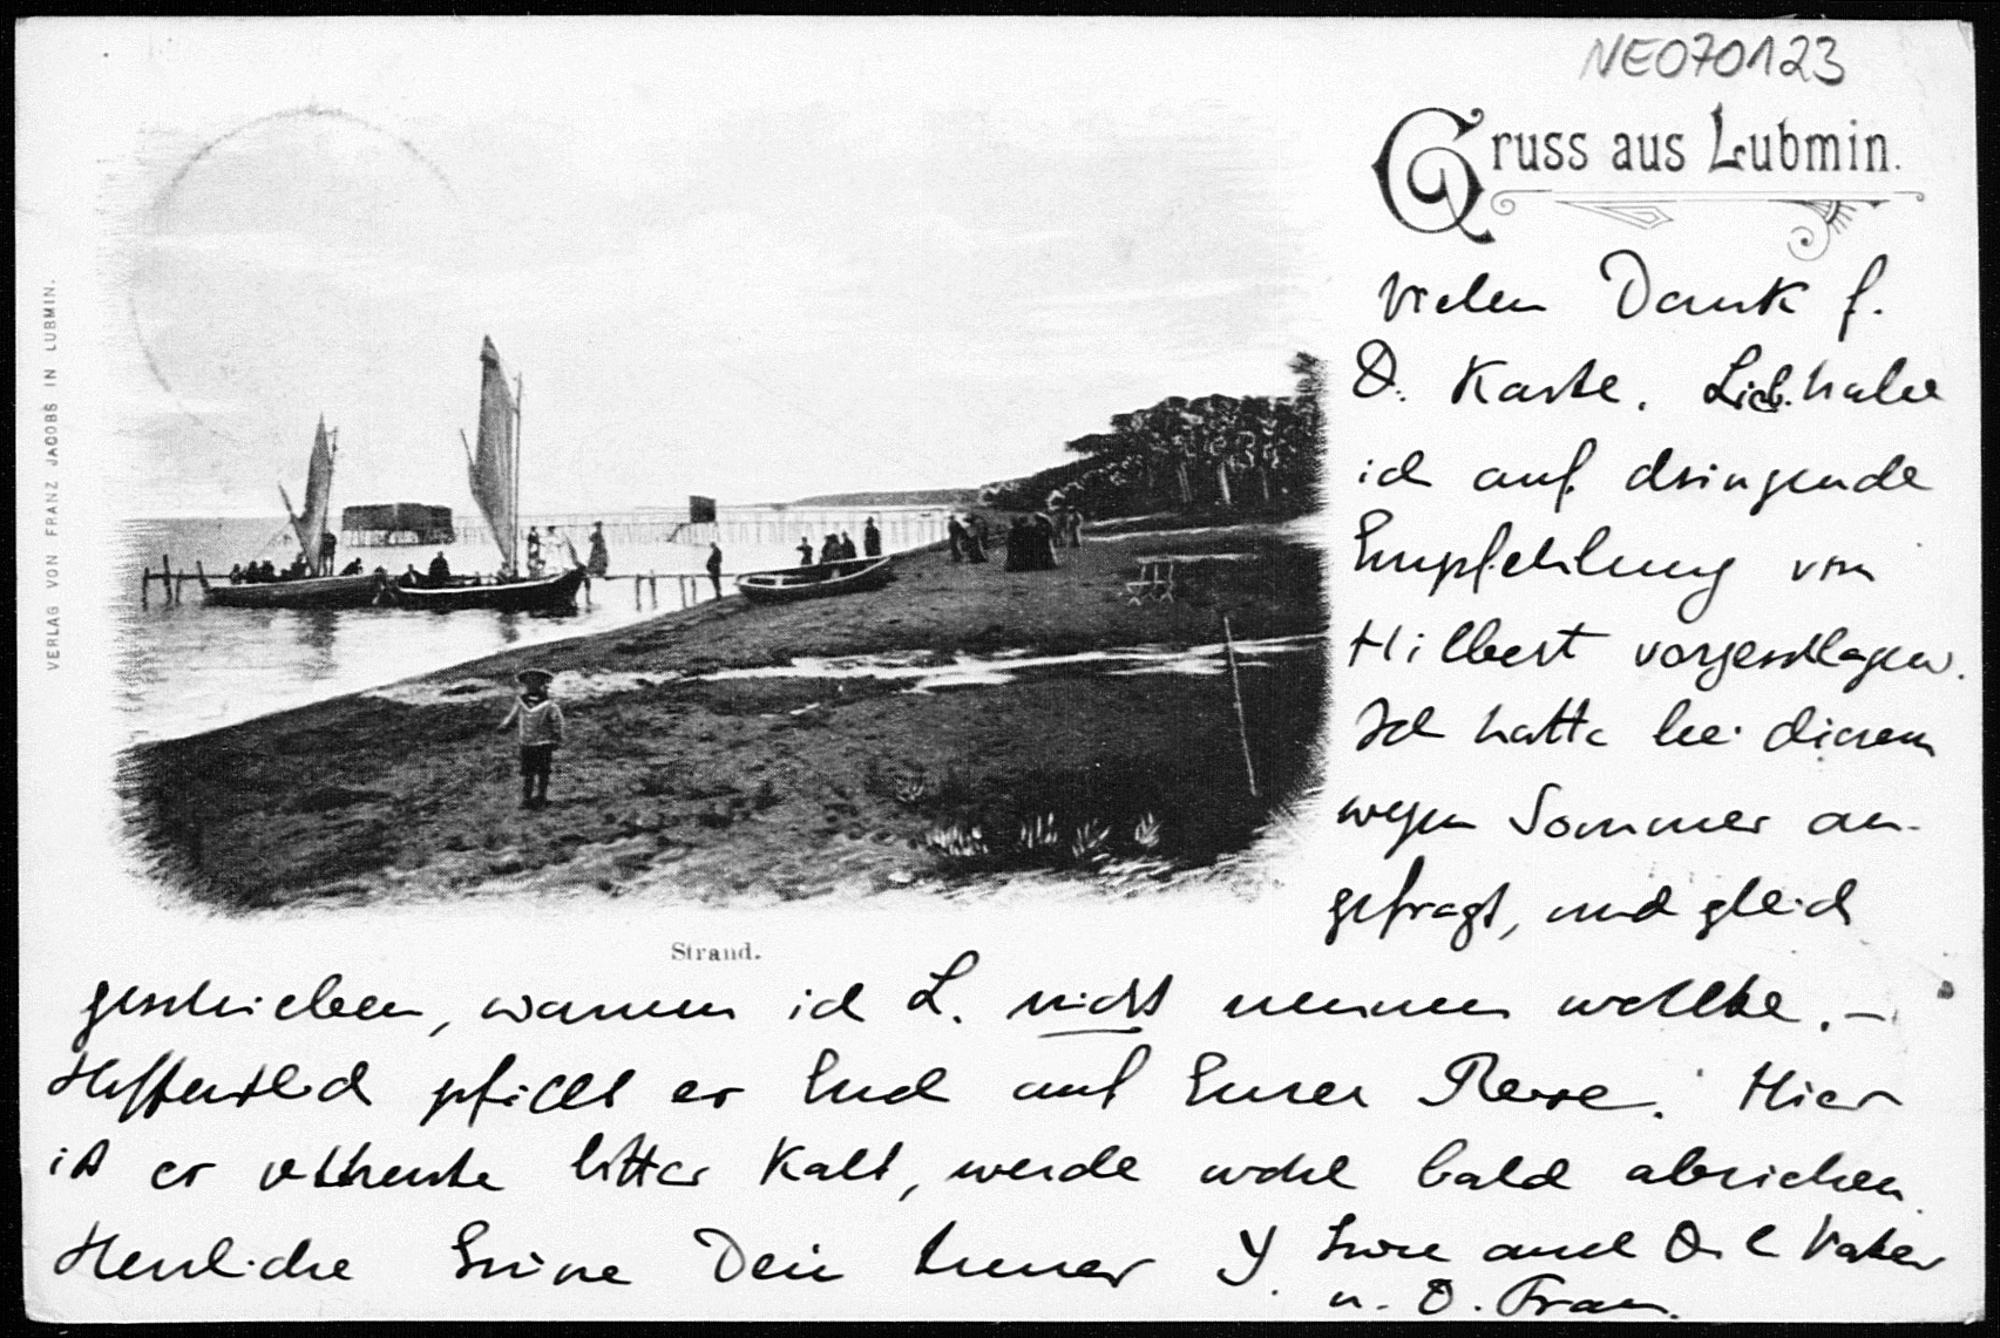 NE070123
Gruss aus Lubmin.
VERLAG VON FRANZ JACOBS IN LUBMIN.
Vielen Dank f.
D. Karte. Lieb. habe
ich auf dringende
Empfehlung von
Hilbert vorgeschlagen.
Ich hatte bei diesem
wegen Sommer an-
gefragt, und gleich
Strand.
geschrieben, warum ich L. nicht nennen wollte. –
Hoffentlich gefällt es Euch auf Eurer Reise. Hier
ist es heute bitter kalt, werde wohl bald abreisen
Herzliche Grüsse Dein treuer
Grüsse auch D. l. Vater
u. D. Frau.